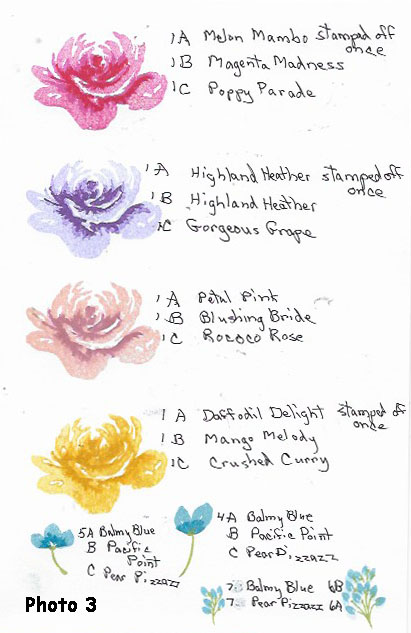 1A Melon Mambo stamped off once
1B Magenta Madness
1C Poppy Parade
1A Highland Heather stamped off once
1B Highland Heather
1C Gorgeous Grape
1A Petal Pink
1B Blushing Bride
1C Rococo Rose
1A Daffodil Delight stamped off once
1B Mango Melody
1C Crushed Curry
5A Balmy Blue
B Pacific
Point
C Pear Pizzazz
4A Balmy Blue
B Pacific Point
C Pear Pizzazz
Balmy Blue 6B
Pear Pizzazz 6A
Photo 3